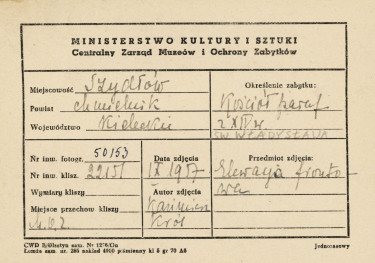 MINISTERSTWO KULTURY I SZTUKI
Centralny Zarząd Muzeów i Ochrony Zabytków
Miejscowość Szydłów
Powiat chmielnik
Województwo Kieleckie
Określenie zabytku:
Kościół paraf
z XIV w
ŚW. WŁADYSŁAWA
Nr inw. fotogr. 50153
Nr inw. klisz. 22151
Wymiary kliszy
Miejsce przechow kliszy
Data zdjęcia
IX 1957
Autor zdjęcia
Kazimierz
Król
Przedmiot zdjęcia:
Elewacja fronto-
wa
CWD Jednorazowy